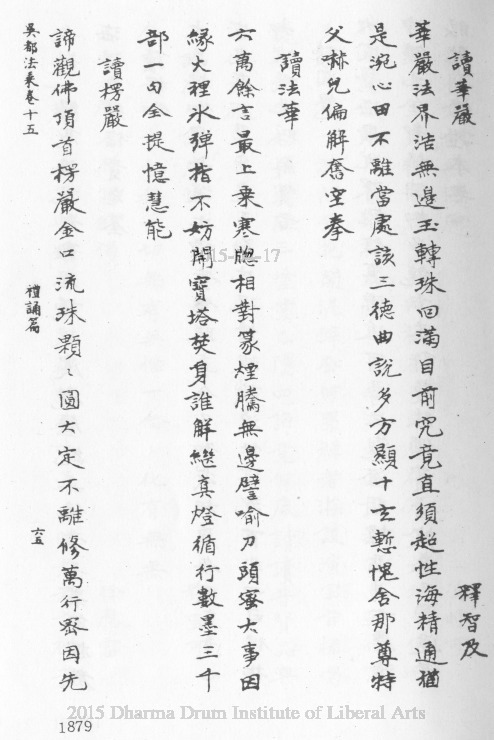 讀華嚴　釋智及
華嚴法界浩無邊玉轉珠回滿目前究竟直須超性海精通猶
是涴心田不離當處該三德曲說多方顯十玄慙愧舍那尊特
父赫兒偏解奮空拳
讀法華
六萬餘言最上乘寒牕相對篆煙騰無邊譬喻刀頭蜜大事因
緣火裡氷彈指不妨開寶塔焚身誰解繼真燈循行數墨三千
部一句全提憶慧能
讀楞嚴
諦觀佛頂首楞嚴金口流珠顆〻圓大定不離修萬行密因先
吳都法乘卷十五　禮誦篇　六五
15-
-17
2015 Dharma Drum Institute of Liberal Arts
1879